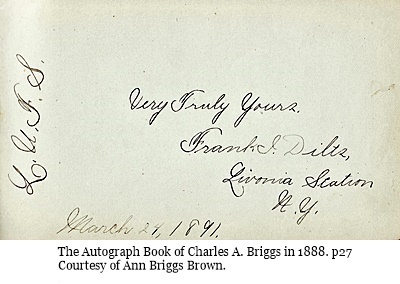 L. U. F. S.
Very Truly Yours.
Frank I. Diles,
Livonia Station
N.Y.
March 29, 1891.
The Autograph Book of Charles A. Briggs in 1888. p27
Courtesy of Ann Briggs Brown.